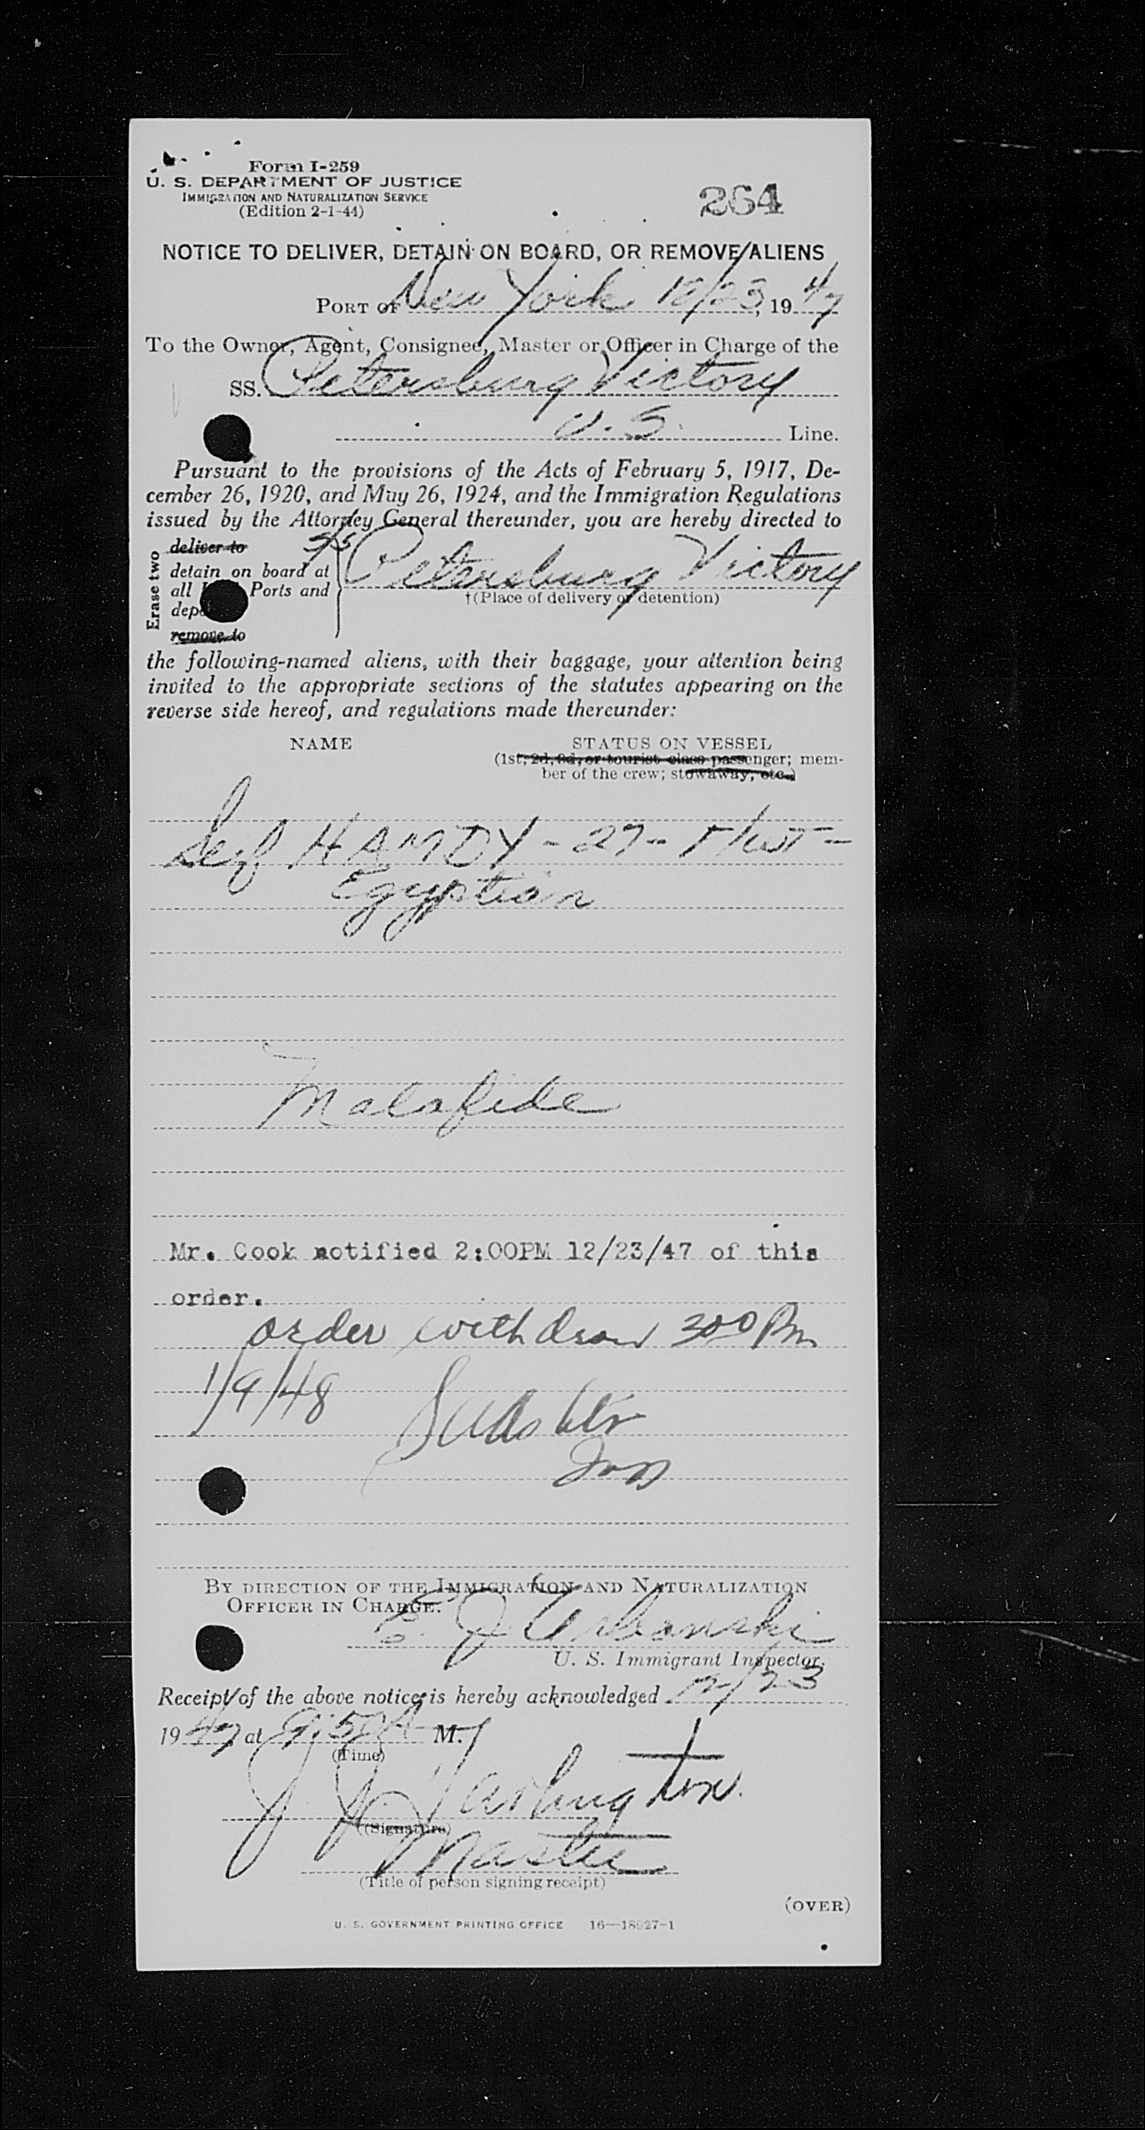 Form I-259
U. S. DEPARTMENT OF JUSTICE
IMMIGRATION AND NATURALIZATION SERVICE
(Edition 2-1-44)
264
NOTICE TO DELIVER, DETAIN ON BOARD, OR REMOVE ALIENS
PORT OF New York 12/23, 19 47
To the Owner, Agent, Consignee, Master or Officer in Charge of the
SS. Petersburg Victory
U. S. Line.
Pursuant to the provisions of the Acts of February 5, 1917, De-
cember 26, 1920, and May 26, 1924, and the Immigration Regulations
issued by the Attorney General thereunder, you are hereby directed to
Erase two
deliver to
detain on board at
all Ports and
remove to
S/S Petersburg Victory
†(Place of delivery or detention)
the following-named aliens, with their baggage, your attention being
invited to the appropriate sections of the statutes appearing on the
reverse side hereof, and regulations made thereunder:
NAME STATUS ON VESSEL
(1st, 2d, 3d, or tourist class passenger; mem-
ber of the crew; stowaway, etc.)
HAMDY - 27 -
Egyptian
Malafide
Mr. Cook notified 2:00PM 12/23/47 of this
order.
order withdrawn 300 Pm
1/9/48
Insp
BY DIRECTION OF THE IMMIGRATION AND NATURALIZATION
OFFICER IN CHARGE.
E. J. Urbanski
U. S. Immigrant Inspector.
Receipt of the above notice is hereby acknowledged 12/23
19 47 at 9:50 A M.
(Time)
Washington
(Signature)
Master
(Title of person signing receipt)
(OVER)
U. S. GOVERNMENT PRINTING OFFICE 16—18927-1